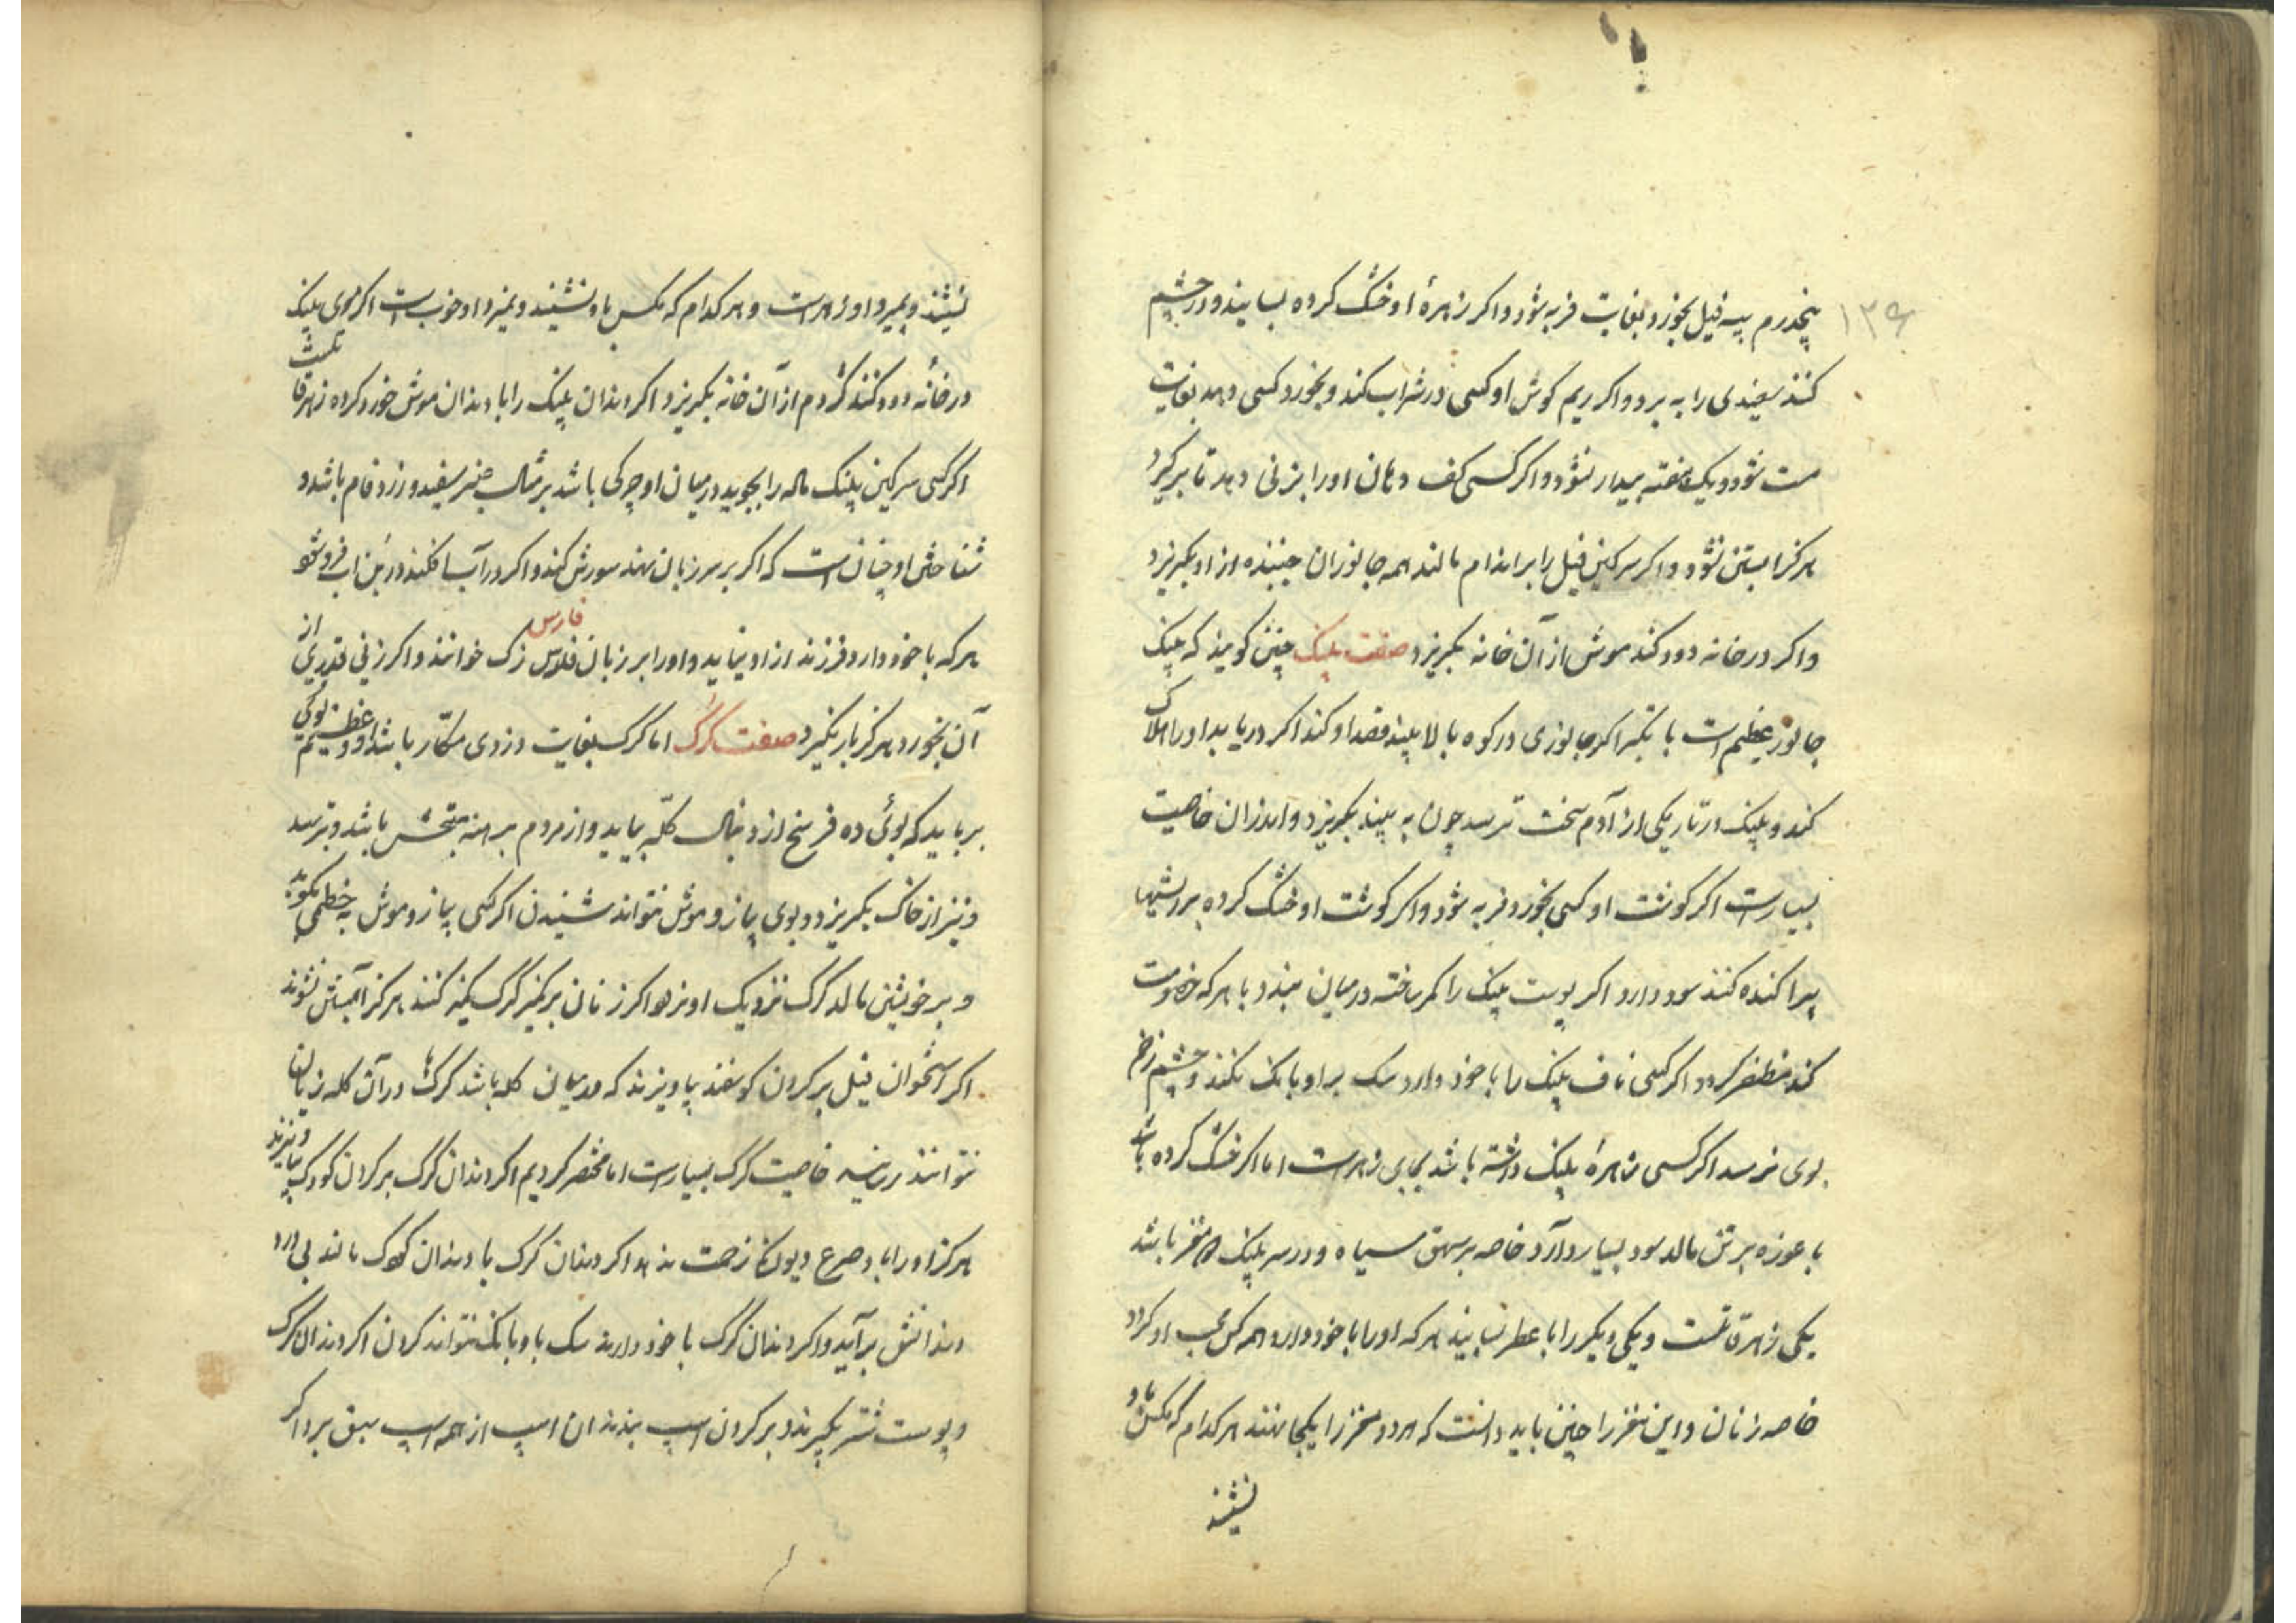 ۱۳۶
پنجدرم پیه فیل بخورد بغایت فربه شود و اکر زهرهٔ او خشک کرده بسایند و در چشم
کنند سفیدی را به برد و اکر ریم کوش او کسی در شراب کند و بخورد کسی دهد بغایت
مست شود و یک هفته بیدار نشود و اکر کسی کف دهان او را بزنی دهد تا برکیرد
هرکز ابستن نشود و اکر سرکین فیل را بر اندام مالند همه جانوران جنبنده از او بکریزد
و اکر در خانه دود کند موش از آن خانه بکریزد صفت پلنک چنین کویند که پلنک
جانور عظیم است با تکبر اکر جانوری در کوه بالا بیند قصد او کند اکر دریابد او را هلاک
کند و پلنک در تاریکی از آدم سخت ترسد چون به بیند بکریزد و اندران خاصیت
بسیارست اکر کوشت او کسی بخورد فربه شود و اکر کوشت او خشک کرده بر ریشها
پراکنده کنند سود دارد اکر پوست پلنک را کمر ساخته در میان بندد با هر که خصومت
کند مظفر کردد اکر کسی ناف پلنک را با خود دارد سک بر او بانک نکند و چشم زخم
بوی نرسد اکر کسی زهرهٔ پلنک داشته باشد بجای زهرست اما اکر خشک کرده باشد
با غوزه بر تن مالد سود بسیار دارد خاصه بر بهق سیاه و در سر پلنک دو مغز باشد
یکی زهر قاتلست و یکی دیکر را با عطر بسایند هر که او را با خود دارد همه کس محب او کردد
خاصه زنان و این مغز را چنین باید دانست که هر دو مغز را یکجا نهند هر کدام که مکس باو
نشیند
نشیند و بمیرد او زهرست و هر کدام که مکس باو نشیند و نمیرد او خوب است اکر موی پلنک
در خانه دود کنند کژدم از آن خانه بکریزد اکر دندان پلنک را با دندان موش خورد کرده زهر قاتلست
اکر کسی سرکین پلنک ماده را بجوید در میان او چرکی باشد بر مثال پنیر سفید و زرد فام باشد و
شناختش او چنان است که اکر بر سر زبان نهند سورش کند و اکر در آب افکنند در بن اب فرو شود
هر که با خود دارد فرزند از او نیاید و او را بر زبان فلاس فارس زک خوانند و اکر زنی قدری از
آن بخورد هرکز بار نکیرد صفت کرک اما کرک بغایت دزدی مکّار باشد و عظیم بوی
برباید که بوئی ده فرسخ از دنبال کلّه بیاید و از مردم برهنه متوحش باشد و بترسد
و نیز از خاک بکریزد و بوی پیاز و موش نتواند شنیدن اکر کسی پیاز و موش به خطمی بکوبد
و بر خویشتن مالد کرک نزدیک او نرود اکر زنان بر کمیز کرک کمیز کنند هرکز آبستن نشوند
اکر استخوان فیل بر کردن کوسفند بیاویزند که در میان کله باشد کرکها در آن کله زیان
نتوانند رسانید خاصیت کرک بسیارست اما مختصر کردیم اکر دندان کرک بر کردن کودک بیاویزند
هرکز او را باد صرع و دیوانکی زحمت ندهد اکر دندان کرک با دندان کودک مالند بی درد
دندانش برآید و اکر دندان کرک با خود دارند سک باو بانک نتواند کردن اکر دندان کرک
و پوست شتر بکیرند و بر کردن اسپ بندند ان اسپ از همه اسپ سبق برد اکر